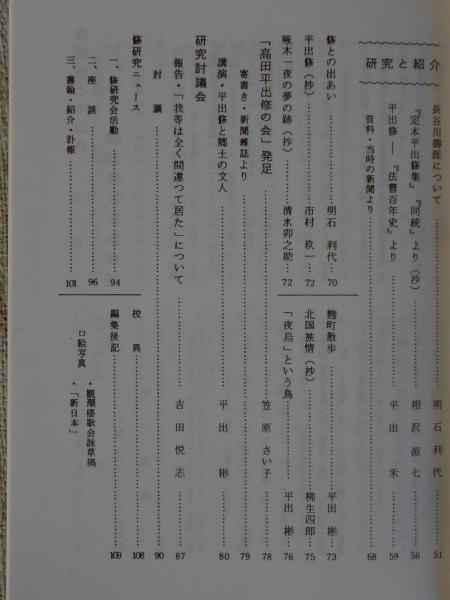 研究と紹介
長谷川濤涯について……明石利代……51
『定本平出修集』『同続』より（抄）……相沢源七……56
平出修──『法曹百年史』より……平出禾……59
資料・当時の新聞より……68
修との出あい……明石利代……70
平出修（抄）……市村玖一……72
啄木一夜の夢の跡（抄）……清水卯之助……72
麹町散歩……平出彬……73
北国旅情（抄）……柳生四郎……75
「夜烏」という鳥……平出彬……76
「高田平出修の会」発足……笠原さい子……78
寄書き・新聞雑誌より……79
研究討議会
講演・平出修と郷土の文人……平出彬……80
報告・「我等は全く間違つて居た」について……吉田悦志……87
討議……90
修研究ニュース
一、修研究会活動……94
二、座談……96
三、書翰・紹介・訃報……101
校異……108
編集後記……109
口絵写真
・観潮楼歌会詠草稿
・「新日本」